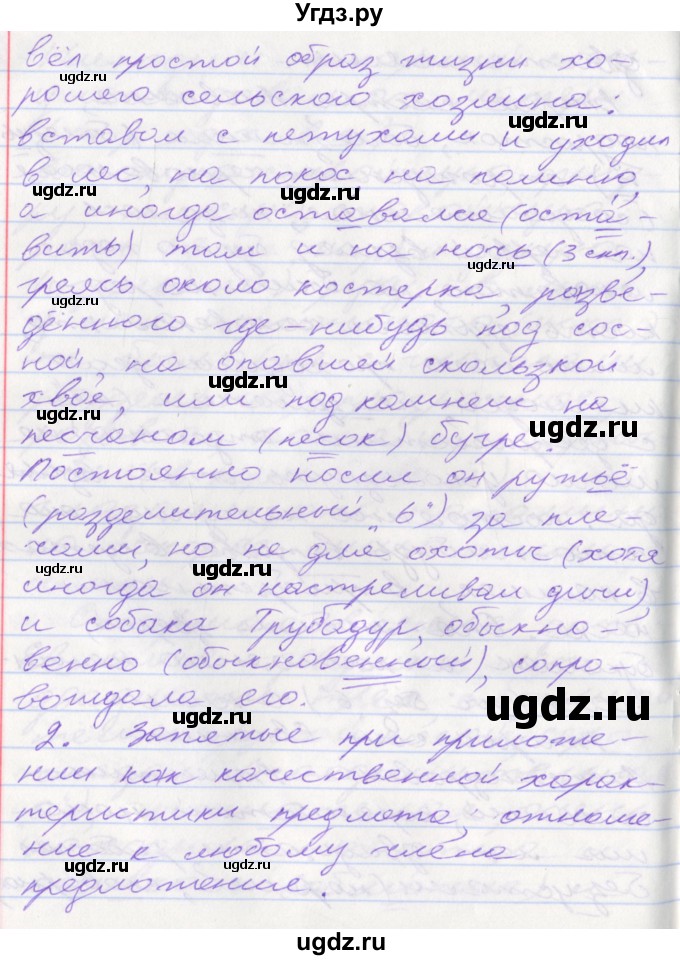 Угдз.ру
вёл простой образ жизни хо-
рошего сельского хозяина:
вставал с петухами и уходил
в лес, на покос на полмню,
а иногда оставался (оста-
вить) там и на ночь (3 скл.),
греясь около костерка, разве-
дённого где-нибудь под сос-
ной, на опавшей скользкой
хвое, или под камнем на
песчаном (песок) бугре.
Постоянно носил он ружьё
(разделительный "ь") за пле-
чами, но не для охоты (хотя
иногда он настреливал дичи),
и собака Трубадур, обыкно-
венно (обыкновенный), сопро-
вождала его.
2. Запятые при приложе-
нии как качественной харак-
теристики предмета, отноше-
ние к любому члена
предложение.
ugdz.ru
ugdz.ru
ugdz.ru
ugdz.ru
ugdz.ru
ugdz.ru
ugdz.ru
ugdz.ru
ugdz.ru
ugdz.ru
ugdz.ru
ugdz.ru
ugdz.ru
ugdz.ru
ugdz.ru
ugdz.ru
ugdz.ru
ugdz.ru
ugdz.ru